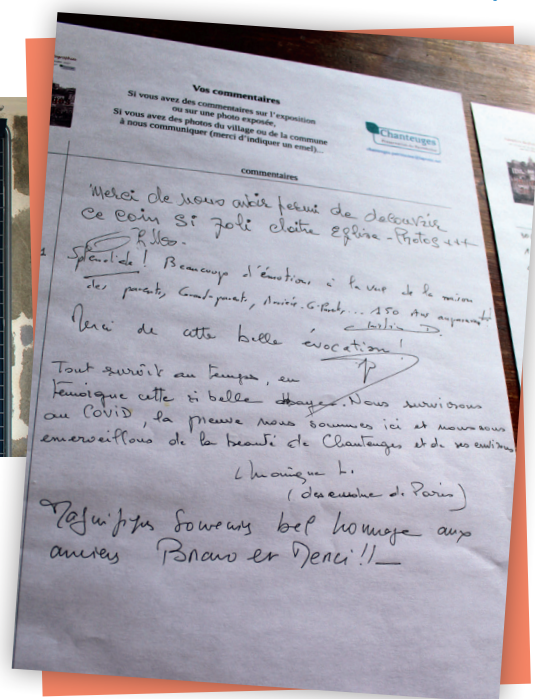 Vos commentaires
Si vous avez des commentaires sur l'exposition
ou sur une photo exposée,
Si vous avez des photos du village ou de la commune
à nous communiquer (merci d'indiquer un emel)...
Chanteuges
commentaires
Merci de nous avoir permi de decouvrir
ce coin si joli cloitre Eglise - Photos +++
Splendide ! Beaucoup d'émotions à la vue de la maison
des parents, Grands-parents, Arrière-G-Parents, ... 150 Ans
Merci de cette belle évocation !
Tout survit au temps, en
témoigne cette si belle. Nous survivons
au COVID, la preuve nous sommes ici et nous nous
emerveillons de la beauté de Chanteuges et de ses environs
Monique L.
(descendue de Paris)
Magnifiques Souvenirs bel homage aux
anciens Bravo et Merci !!